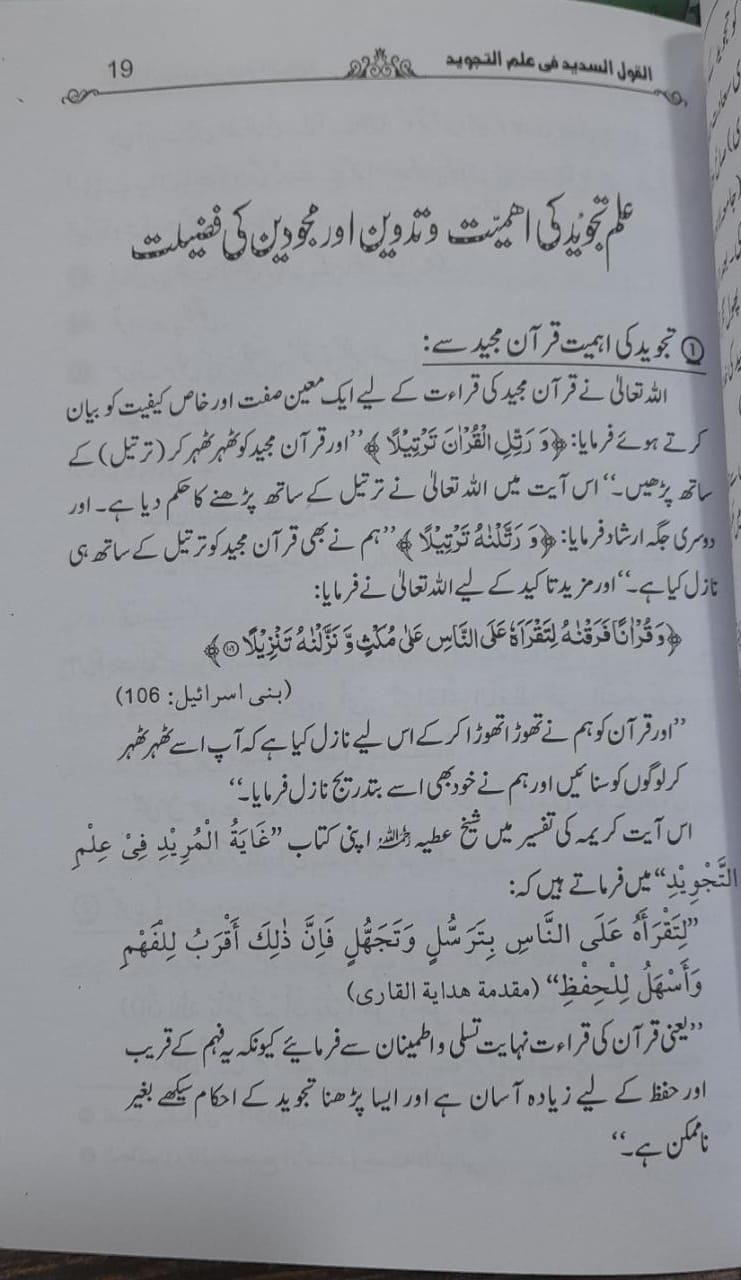 القول السديد فى علم التجويد 19
علم تجوید کی اہمیت و تدوین اور مجودین کی فضیلت
① تجوید کی اہمیت قرآن مجید سے:
اللہ تعالیٰ نے قرآن مجید کی قراءت کے لیے ایک معین صفت اور خاص کیفیت کو بیان
کرتے ہوئے فرمایا: ﴿وَ رَتِّلِ الْقُرْاٰنَ تَرْتِيْلًا﴾ ”اور قرآن مجید کو ٹھہر ٹھہر کر (ترتیل) کے
ساتھ پڑھیں۔“ اس آیت میں اللہ تعالیٰ نے ترتیل کے ساتھ پڑھنے کا حکم دیا ہے۔ اور
دوسری جگہ ارشاد فرمایا: ﴿وَ رَتَّلْنٰهُ تَرْتِيْلًا﴾ ”ہم نے بھی قرآن مجید کو ترتیل کے ساتھ ہی
نازل کیا ہے۔“ اور مزید تاکید کے لیے اللہ تعالیٰ نے فرمایا:
﴿وَ قُرْاٰنًا فَرَقْنٰهُ لِتَقْرَاَهٗ عَلَى النَّاسِ عَلٰى مُكْثٍ وَّ نَزَّلْنٰهُ تَنْزِيْلًا ۝۱۰۶﴾
(بنی اسرائیل: 106)
”اور قرآن کو ہم نے تھوڑا تھوڑا کر کے اس لیے نازل کیا ہے کہ آپ اسے ٹھہر ٹھہر
کر لوگوں کو سنائیں اور ہم نے خود بھی اسے بتدریج نازل فرمایا۔“
اس آیت کریمہ کی تفسیر میں شیخ عطیہ رحمہ اللہ اپنی کتاب ”غَايَةُ الْمُرِيْدِ فِىْ عِلْمِ
التَّجْوِيْدِ“ میں فرماتے ہیں کہ:
”لِتَقْرَأَهُ عَلَى النَّاسِ بِتَرَسُّلٍ وَتَجَهُّلٍ فَإِنَّ ذٰلِكَ أَقْرَبُ لِلْفَهْمِ
وَأَسْهَلُ لِلْحِفْظِ“ (مقدمة هداية القارى)
”یعنی قرآن کی قراءت نہایت تسلی و اطمینان سے فرمائیے کیونکہ یہ فہم کے قریب
اور حفظ کے لیے زیادہ آسان ہے اور ایسا پڑھنا تجوید کے احکام سیکھے بغیر
ناممکن ہے۔“